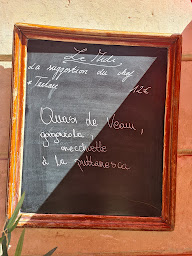 Le Midi
La suggestion du chef
+ Tartare 12€
Quasi de Veau,
orecchiette
à la puttanesca